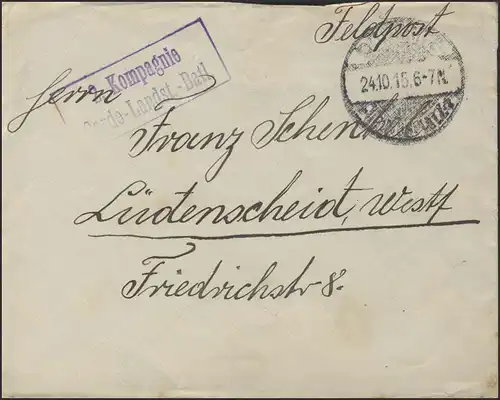 Feldpost
24.10.15.6-7N.
Kompagnie
Landst.-Batl
Herrn
Franz Schen
Lüdenscheid, Westf
Friedrichstr 8.